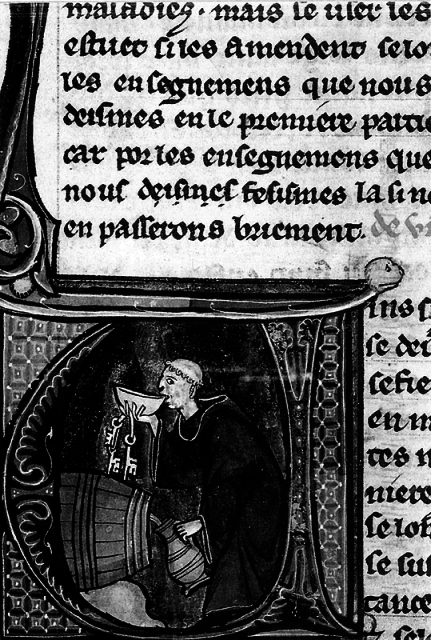 maladies. mais se user les
estuet si les amendent selo
les ensegnemens que nous
desimes en le premiere partie
car por les ensegnemens que
nous desimes fesismes la si ne
en passerons briement. de vi
ins s
se dei
sefie
en m
tes n
niere
se lob
se su
tance